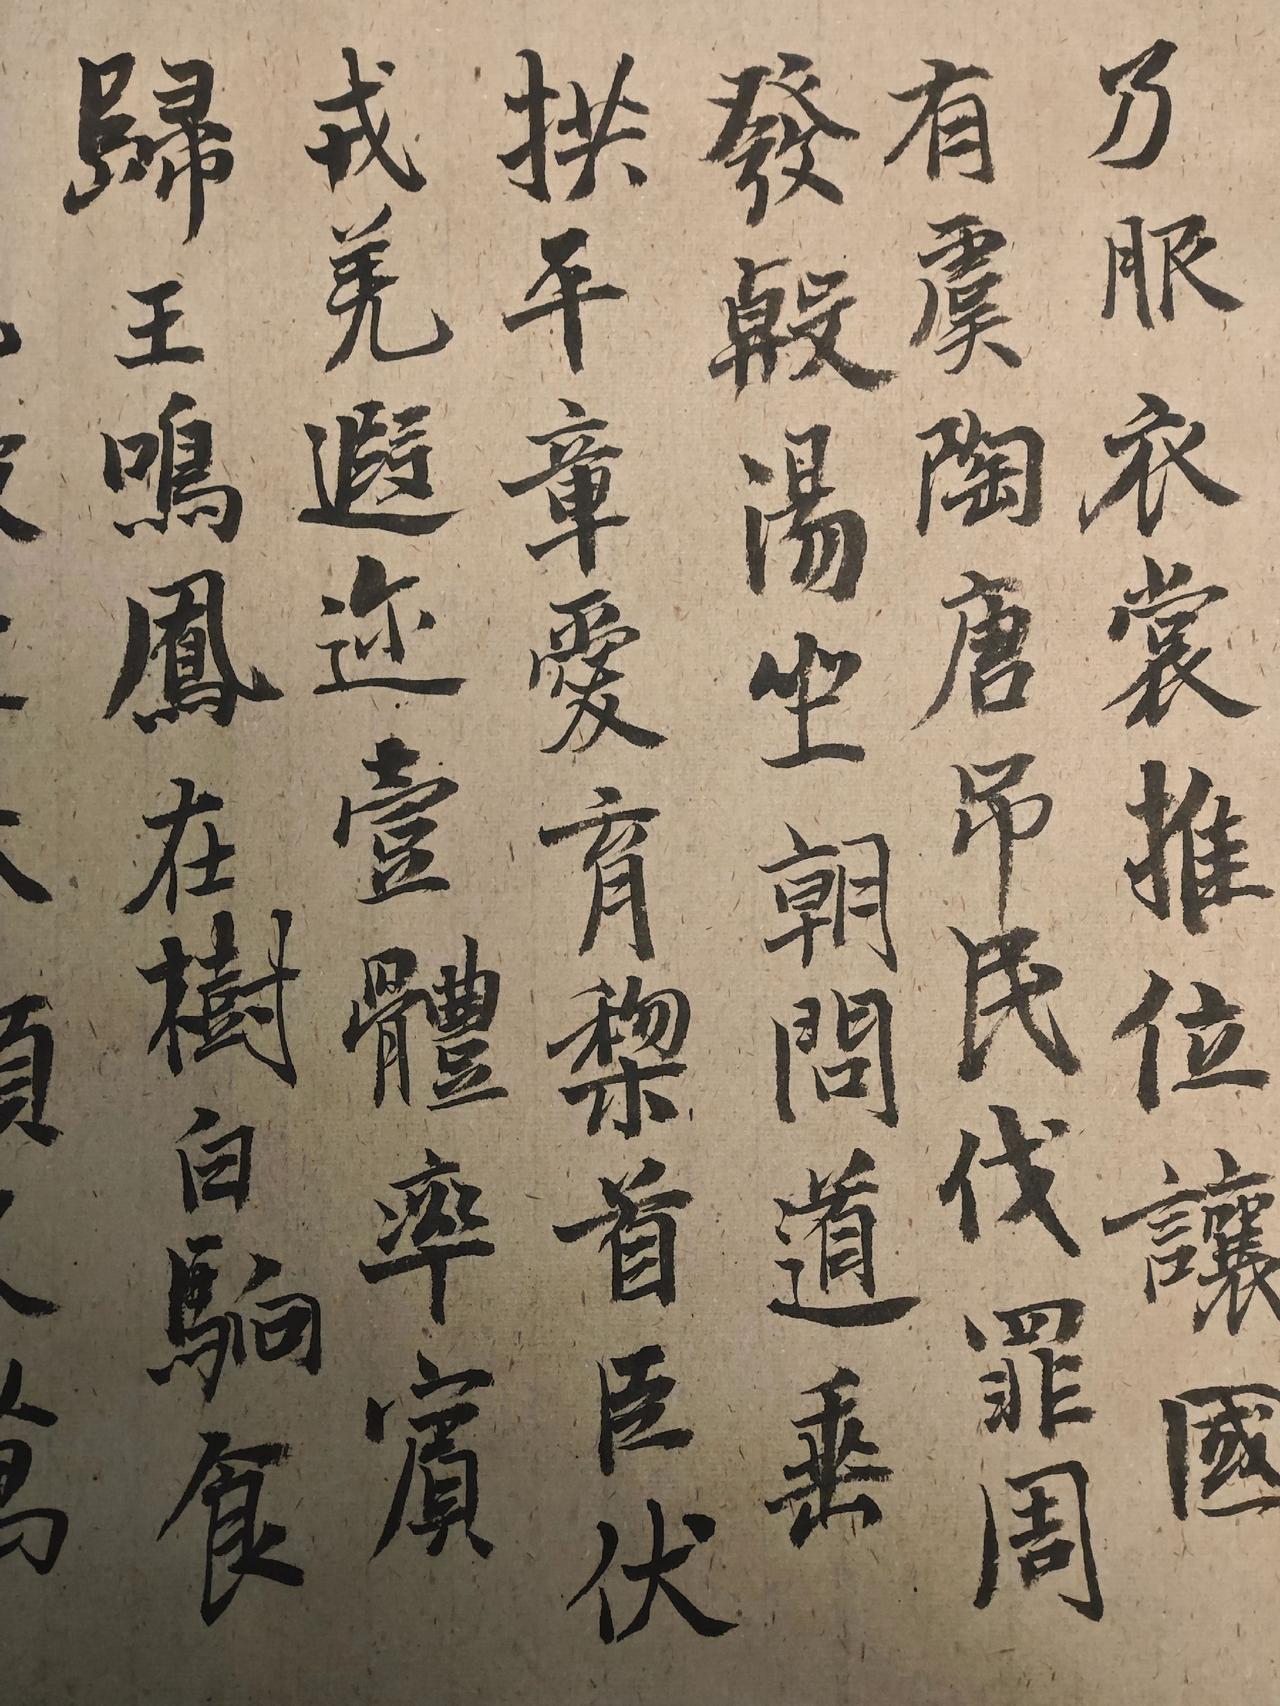 乃服衣裳推位讓國
有虞陶唐吊民伐罪周
發殷湯坐朝問道垂
拱平章愛育黎首臣伏
戎羌遐迩壹體率賓
歸王鳴鳳在樹白駒食